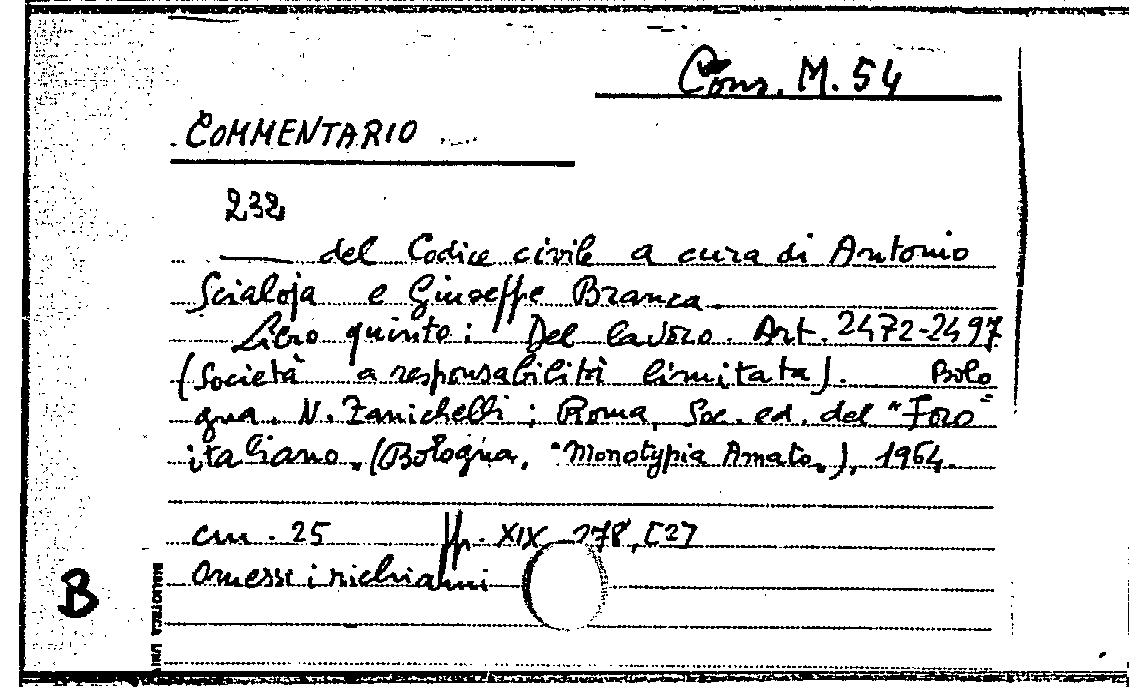 Cons. M. 54
COMMENTARIO ....
232
—— del Codice civile a cura di Antonio
Scialoja e Giuseppe Branca.
Libro quinto: Del lavoro. Art. 2472-2497
(Società a responsabilità limitata). Bolo=
gna. N. Zanichelli; Roma, Soc. ed. del "Foro
italiano. (Bologna, "Monotypia Amato,,), 1964.
cm. 25 pp. XIX, 278, [2]
Omessi i richiami
B
BIBLIOTECA UNI